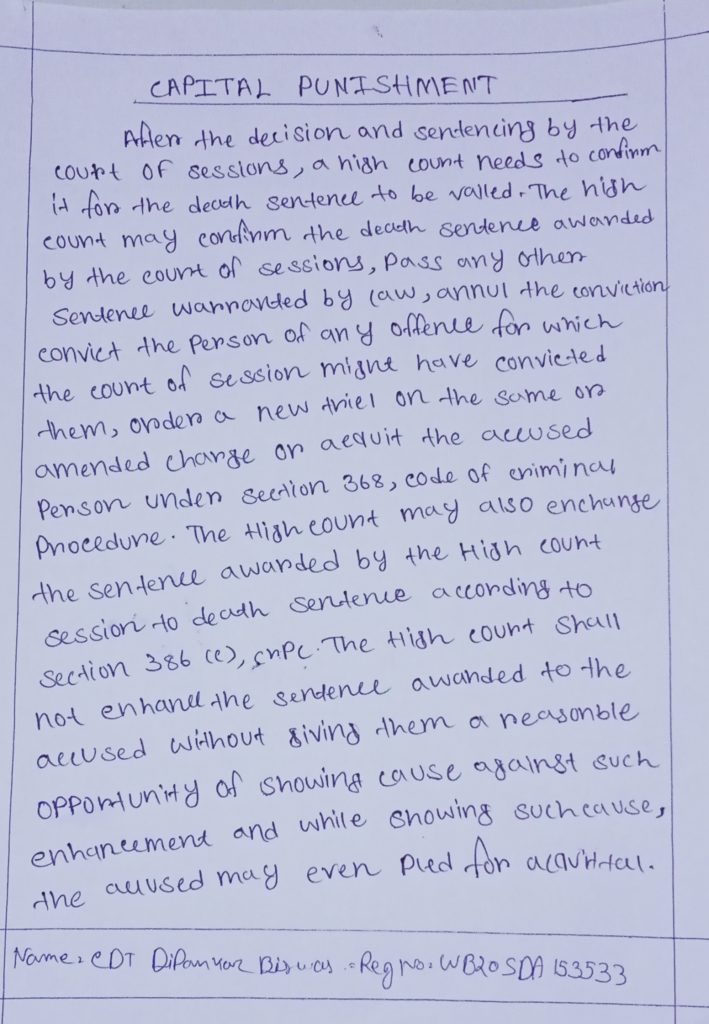 CAPITAL PUNISHMENT
After the decision and sentencing by the
court of sessions, a high court needs to confirm
it for the death sentence to be valled. The high
court may confirm the death sentence awarded
by the court of sessions, Pass any other
Sentence warranted by law, annul the conviction
convict the Person of any offence for which
the court of session might have convicted
them, order a new triel on the same or
amended charge or acquit the accused
Person under section 368, code of criminal
Procedure. The High court may also enchange
the sentence awarded by the High court
session to death sentence according to
section 386 (c), crPc. The High court shall
not enhance the sentence awarded to the
accused without giving them a reasonble
opportunity of showing cause against such
enhancement and while showing such cause,
the accused may even pled for acquittal.
Name: CDT Dipankar Biswas - Reg no: WB20SDA153533